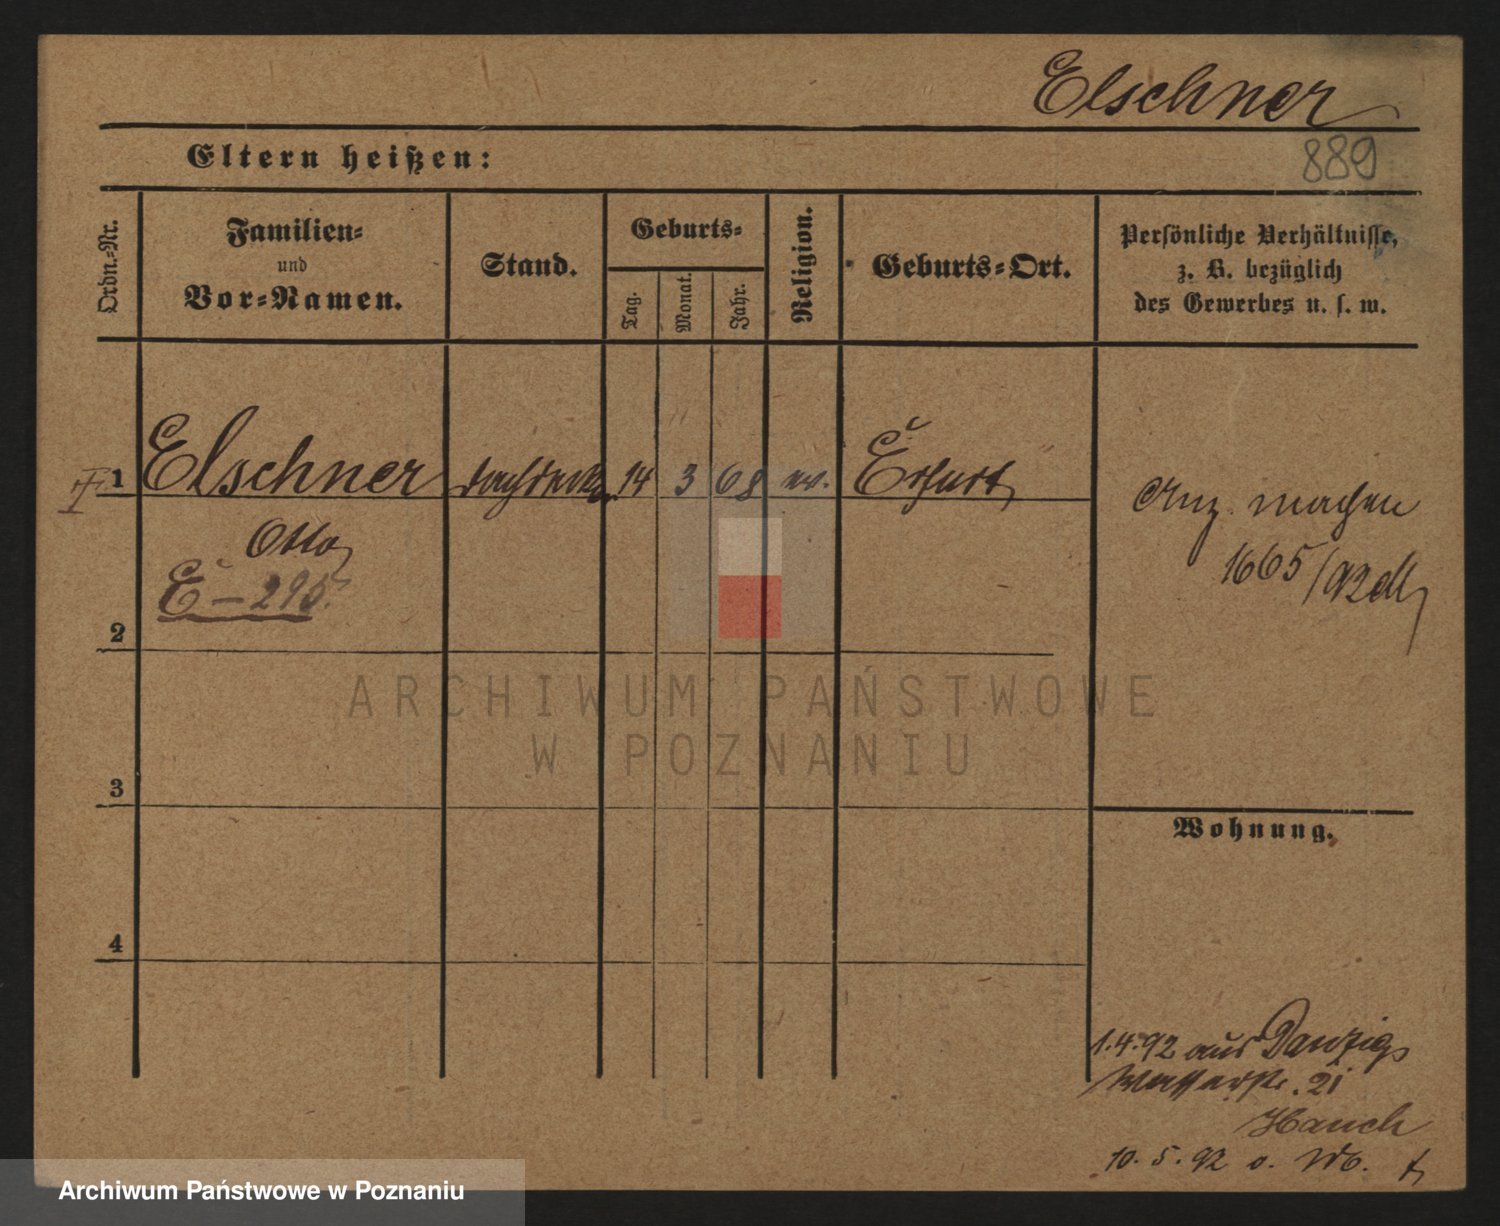 Elschner
889
Eltern heißen:
Ordn.-Nr.
Familien-
und
Vor-Namen.
Stand.
Geburts-
Tag.
Monat.
Jahr.
Religion.
Geburts-Ort.
Persönliche Verhältnisse,
z. B. bezüglich
des Gewerbes u. s. w.
1 Elschner 14 3 68 ev. Erfurt
Otto
E - 295.
Anz. machen
1665/92
2
ARCHIWUM PAŃSTWOWE
W POZNANIU
3
Wohnung.
4
1.4.92 aus Danzig
Wasserstr. 21
Hauch
10. 5. 92 o. Wo.
Archiwum Państwowe w Poznaniu